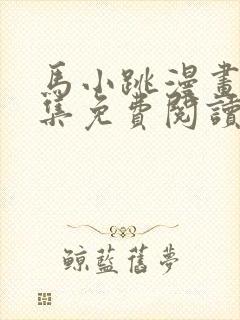 馬小跳漫畫
集免費閱讀
鯨藍舊夢